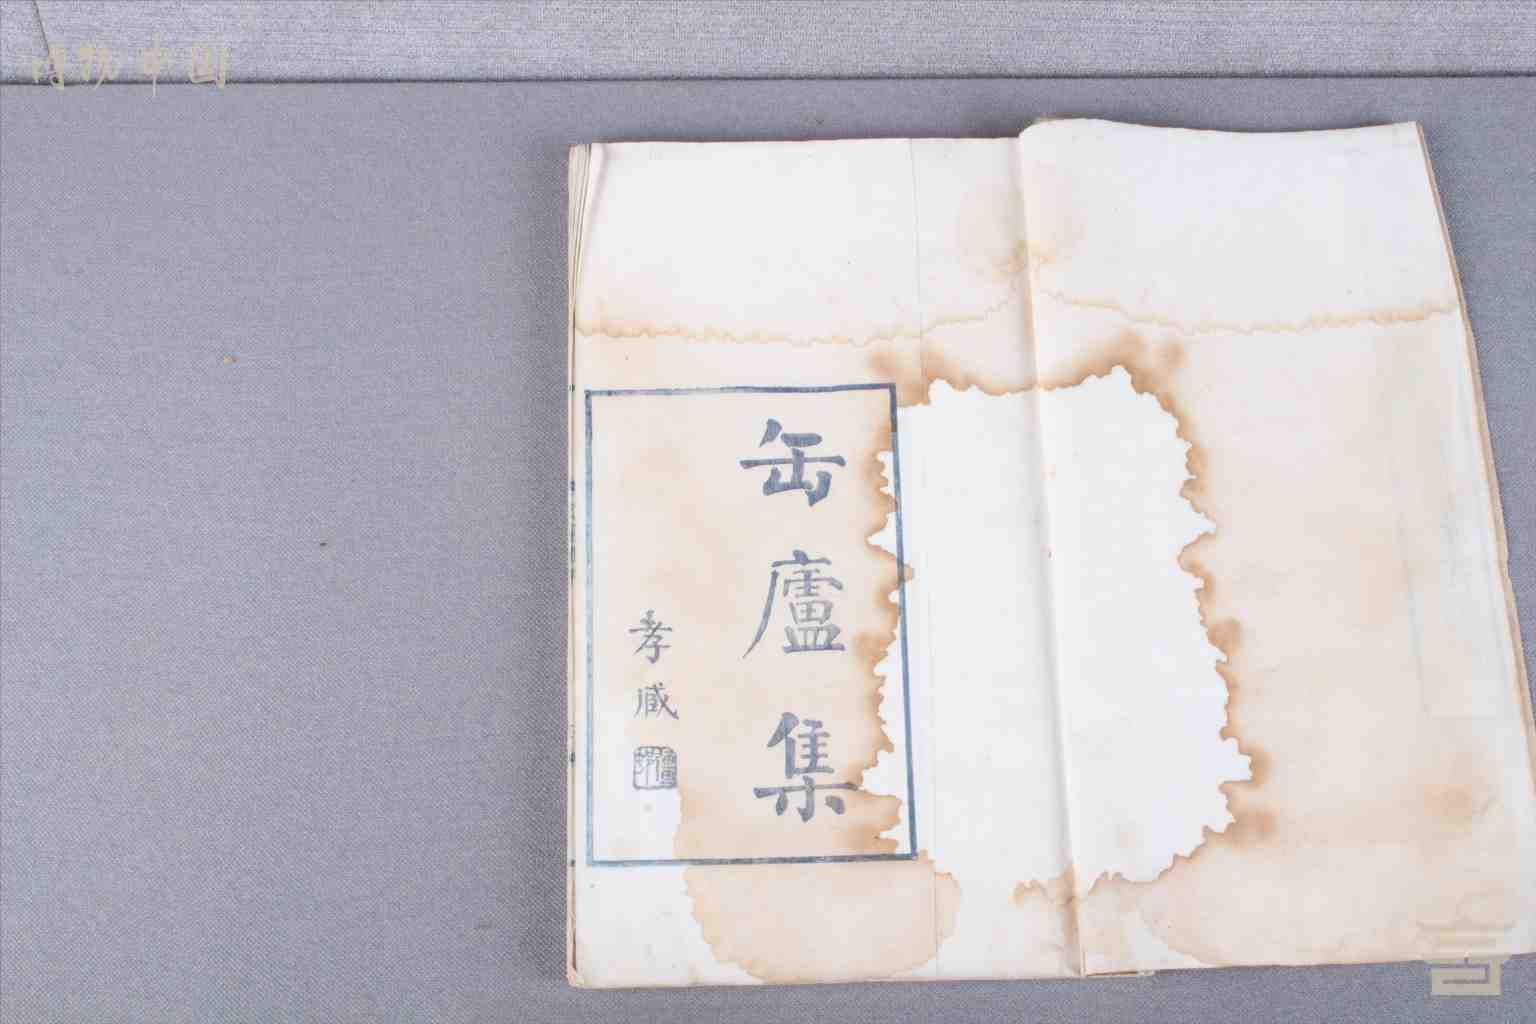 博物中国
缶廬集
孝臧